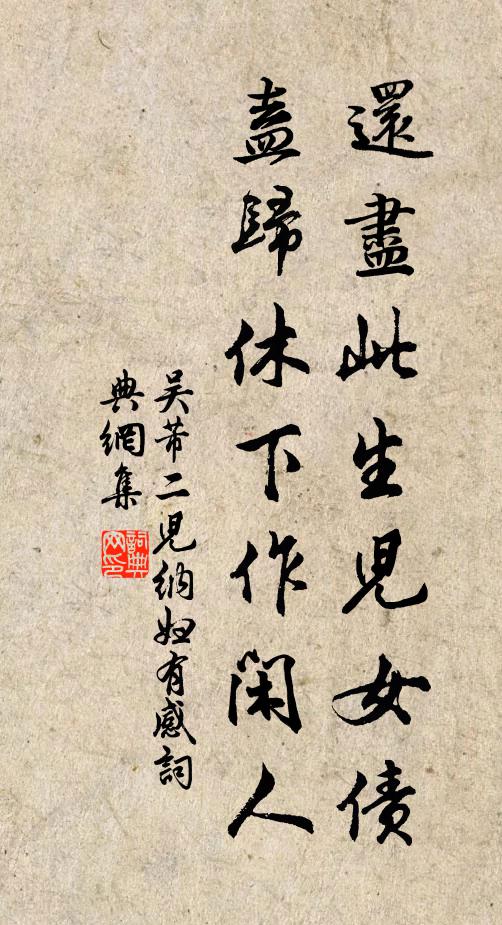 還盡此生兒女債
盍歸休下作閑人
吴芾二兒納婦有感詞
典網集
詞典
网印